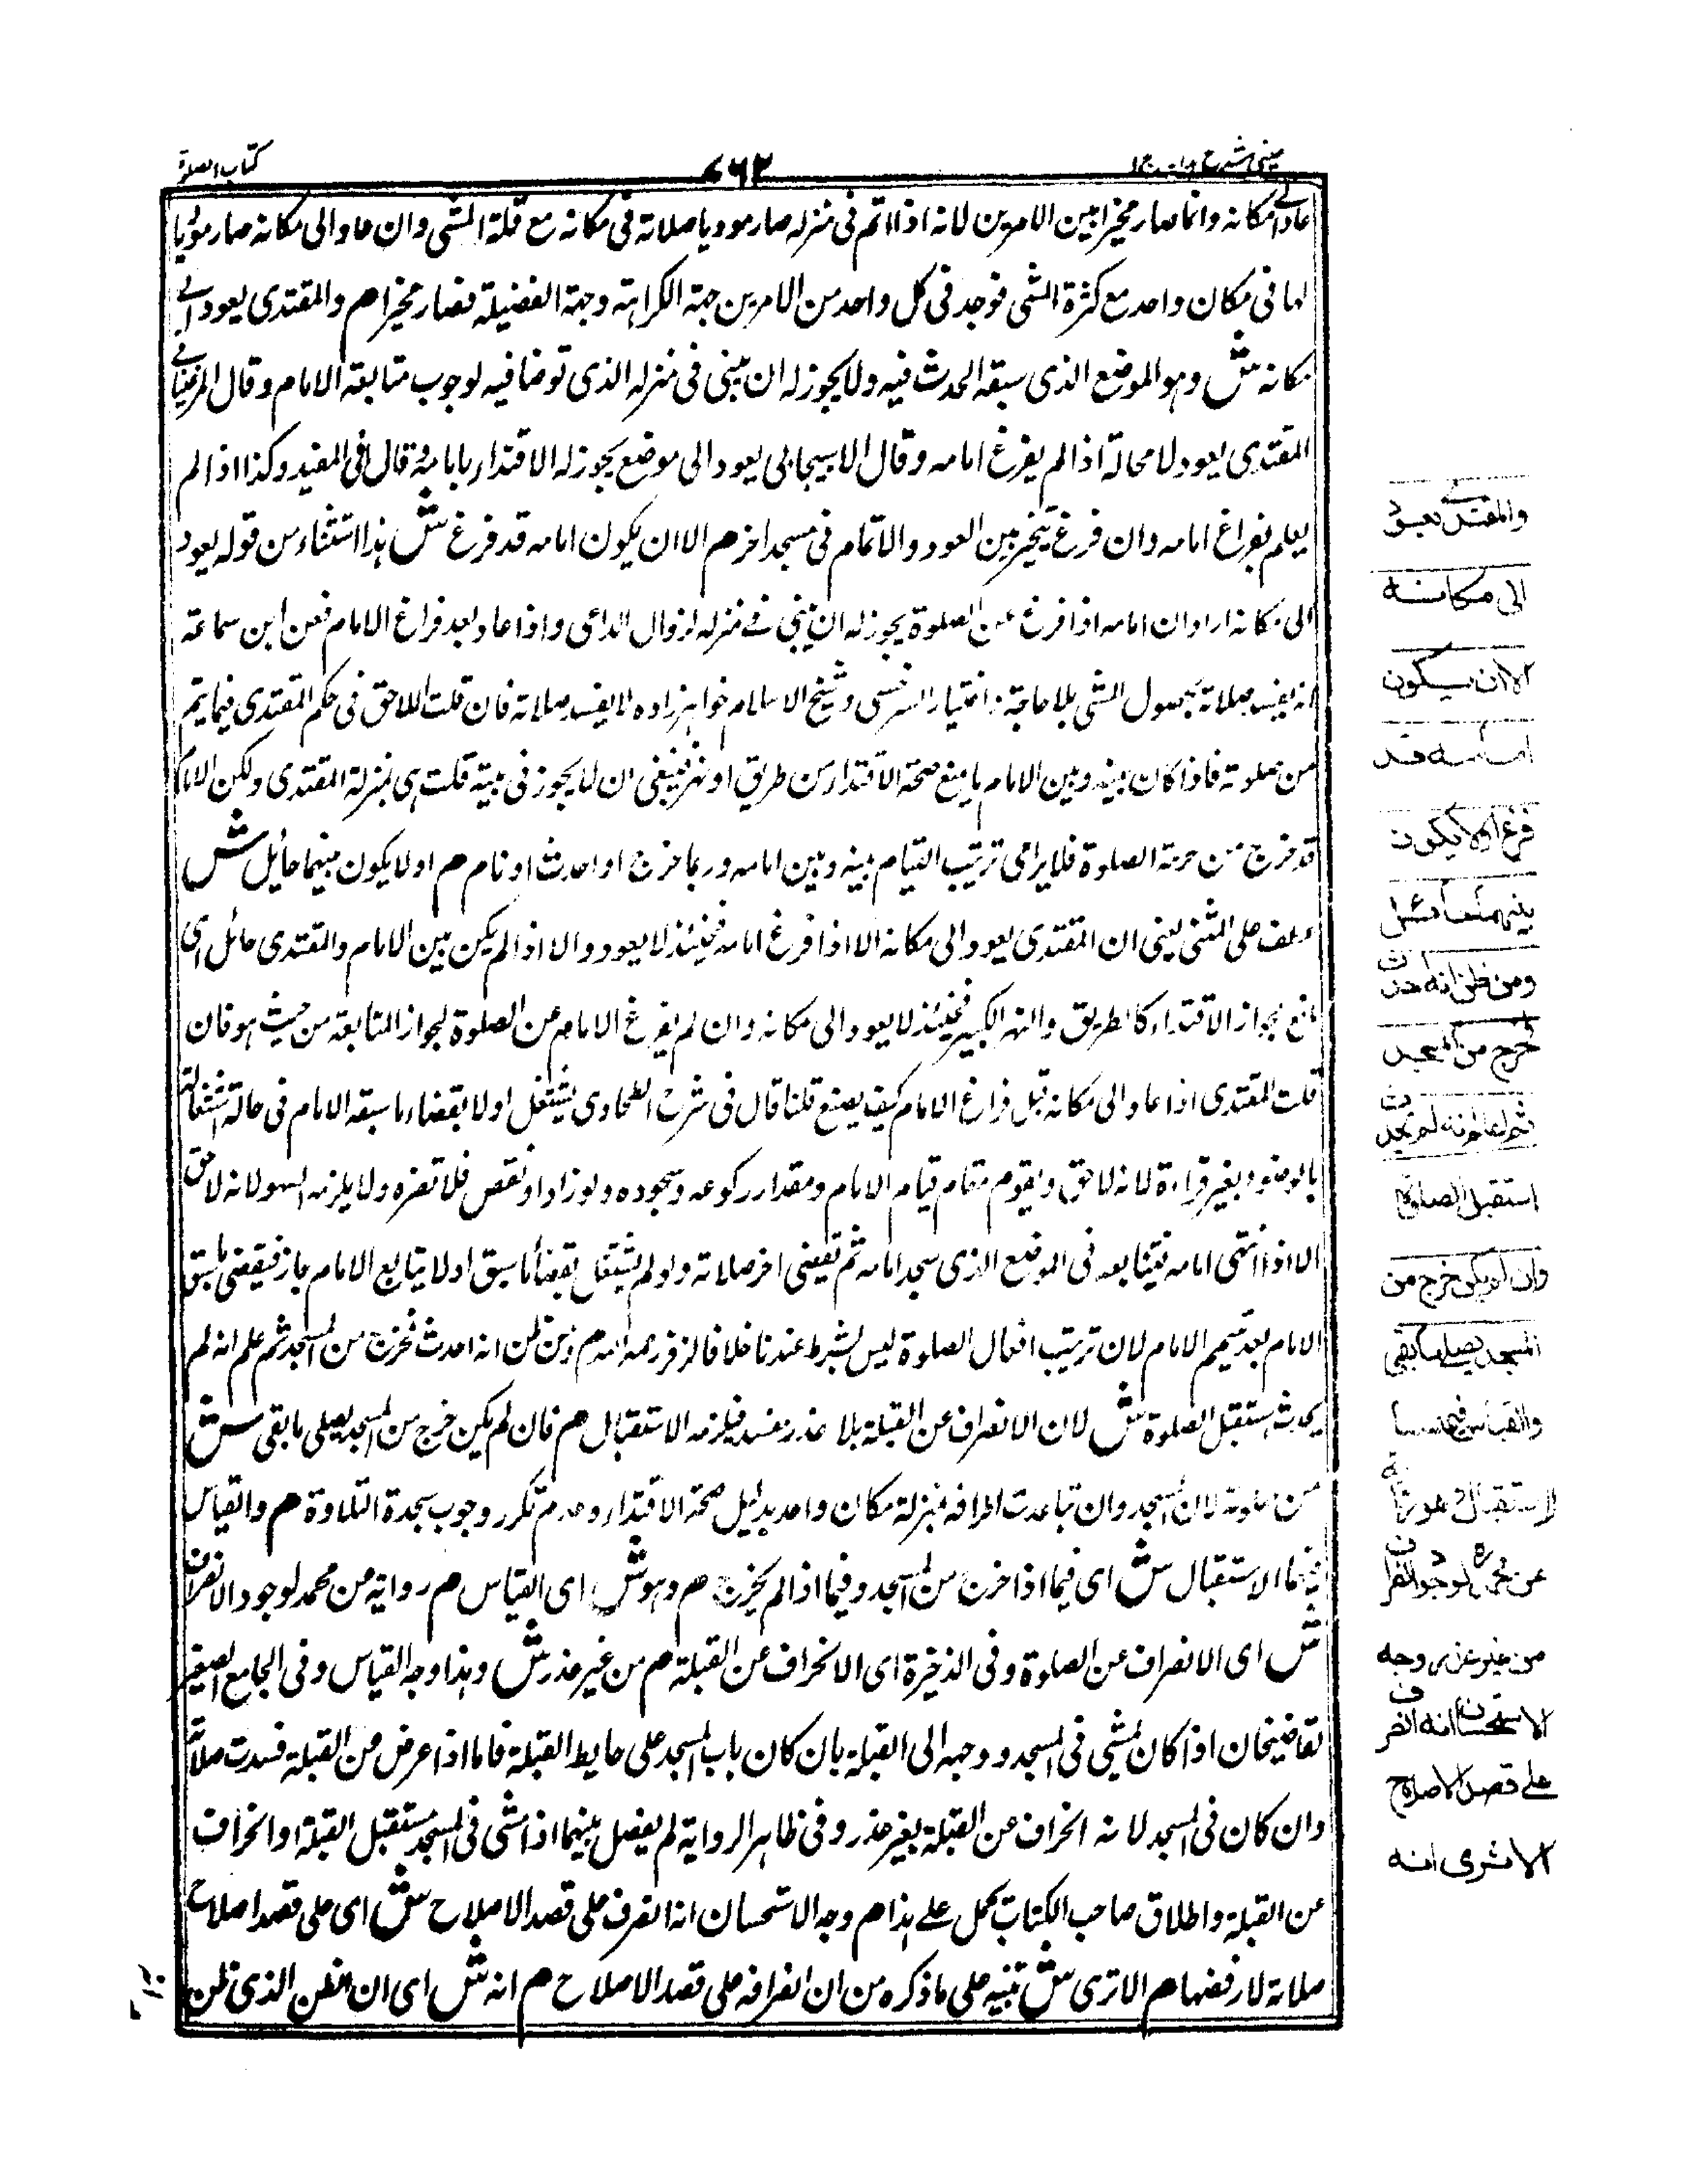 عينى شرح
٧٦٢
كتاب الصلوة
عاد الى مكانه وانما صار مخيرا بين الامرين لانه اذا اتم فى منزله صار موديا صلاته فى مكانه مع قلة المشى وان عاد الى مكانه صار موديا
لها فى مكان واحد مع كثرة المشى فوجد فى كل واحد من الامرين جهة الكراهة وجهة الفضيلة فصار مخيرا هم والمقتدى يعود الى
مكانه ش وهو الموضع الذى سبقه الحدث فيه ولا يجوز له ان يبنى فى منزله الذى توضا فيه لوجوب متابعة الامام وقال المرغينانى
المقتدى يعود لا محالة اذا لم يفرغ امامه وقال الاسبيجابى يعود الى موضع يجوز له الاقتداء بامامه قال فى المفيد وكذا اذا لم
يعلم بفراغ امامه وان فرغ يتخير بين العود والاتمام فى مسجد اخر هم الا ان يكون امامه قد فرغ ش هذا استثناء من قوله يعود
الى مكانه اراد ان امامه اذا فرغ عن الصلوة يجوز له ان يبنى فى منزله لزوال الداعى واذا عاد بعد فراغ الامام فعن ابن سماعة
انه يفسد صلاته بحصول المشى بلا حاجة واختيار السرخسى وشيخ الاسلام خواهرزاده لا يفسد صلاته فان قلت اللاحق فى حكم المقتدى فيما يتم
من صلوته فاذا كان بينه وبين الامام ما يمنع صحة الاقتداء من طريق او نهر فينبغى ان لا يجوز فى بيته قلت هى بمنزلة المقتدى ولكن الامام
قد خرج من حرمة الصلوة فلا يراعى ترتيب القيام بينه وبين امامه وربما خرج او احدث او نام هم او لا يكون بينهما حائل ش
عطف على المثنى يعنى ان المقتدى يعود الى مكانه الا اذا فرغ امامه فحينئذ لا يعود والا اذا لم يكن بين الامام والمقتدى حائل اى
مانع لجواز الاقتداء كالطريق والنهر الكبير فحينئذ لا يعود الى مكانه وان لم يفرغ الامام عن الصلوة لجواز المتابعة من حيث هو فان
قلت المقتدى اذا عاد الى مكانه قبل فراغ الامام كيف يصنع قلنا قال فى شرح الطحاوى يشتغل اولا بقضاء ما سبقه الامام فى حالة اشتغاله
بالوضوء بغير قراءة لانه لاحق ويقوم مقام قيام الامام ومقدار ركوعه وسجوده ولو زاد او نقص فلا تضره ولا يلزمه السهو لانه لاحق
الا اذا انتهى امامه فيتابعه فى الموضع الذى سجد امامه ثم يقضى اخر صلاته ولو لم يشتغل بقضاء ما سبق اولا يتابع الامام جاز فيقضى ما سبق
الامام بعد تتميم الامام لان ترتيب افعال الصلوة ليس بشرط عندنا خلافا لزفر رحمه الله هم ومن ظن انه احدث فخرج من المسجد ثم علم انه لم
يحدث يستقبل الصلوة ش لان الانصراف عن القبلة بلا عذر مفسد فيلزمه الاستقبال هم فان لم يكن خرج من المسجد يصلى ما بقى ش
من صلوته لان المسجد وان تباعدت اطرافه بمنزلة مكان واحد بدليل صحة الاقتداء وعدم تكرر وجوب سجدة التلاوة هم والقياس
فيهما الاستقبال ش اى فيما اذا خرج من المسجد وفيما اذا لم يخرج هم وهو ش اى القياس هم رواية من محمد لوجود الانصراف
ش اى الانصراف عن الصلوة وفى الذخيرة اى الانحراف عن القبلة هم من غير عذر ش وهذا وجه القياس وفى الجامع الصغير
لقاضيخان اذا كان المشى فى المسجد ووجهه الى القبلة بان كان باب المسجد على حايط القبلة فاما اذا اعرض من القبلة فسدت صلاته
وان كان فى المسجد لانه انحراف عن القبلة بغير عذر وفى ظاهر الرواية لم يفصل بينهما اذا مشى فى المسجد مستقبل القبلة او انحراف
عن القبلة واطلاق صاحب الكتاب يحمل على هذا هم وجه الاستحسان انه انصرف على قصد الاصلاح ش اى على قصد اصلاح
صلاته لا رفضها هم الا ترى ش تنبيه على ما ذكره من ان انصرافه على قصد الاصلاح هم انه ش اى ان الظن الذى ظن
والمقتدى يعود
الى مكانه
الا ان يكون
امامه قد
فرغ او لا يكون
بينهما حائل
ومن ظن انه احدث
فخرج من المسجد
ثم علم انه لم يحدث
استقبل الصلوة
وان لم يكن خرج من
المسجد يصلى ما بقى
والقياس فيهما
الاستقبال وهو رواية
عن محمد لوجود الانصراف
من غير عذر وجه
الاستحسان انه انصرف
على قصد الاصلاح
الا ترى انه